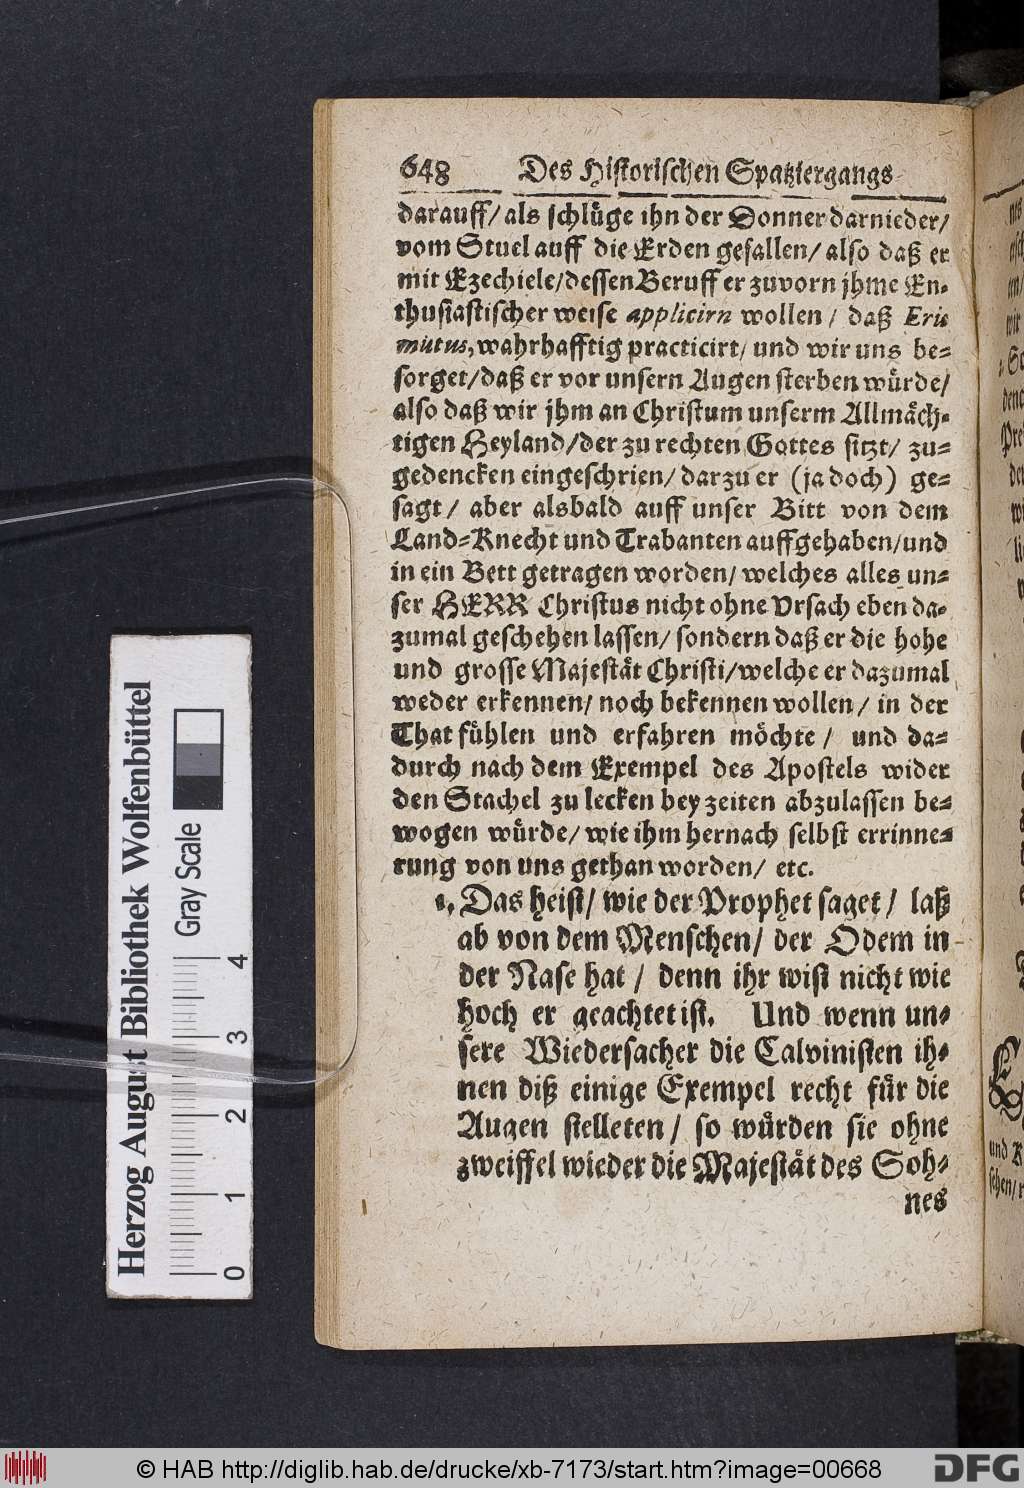 648 Des Historischen Spatziergangs
darauff/ als schlüge ihn der Donner darnieder/
vom Stuel auff die Erden gefallen/ also daß er
mit Ezechiele/dessen Beruff er zuvorn jhme En-
thusiastischer weise applicirn wollen/ daß Erit
mutus, wahrhafftig practicirt/ und wir uns be-
sorget/daß er vor unsern Augen sterben würde/
also daß wir jhm an Christum unserm Allmäch-
tigen Heyland/der zu rechten Gottes sitzt/ zu-
gedencken eingeschrien/ darzu er (ja doch) ge-
sagt/ aber alsbald auff unser Bitt von dem
Land-Knecht und Trabanten auffgehaben/und
in ein Bett getragen worden/ welches alles un-
ser HERR Christus nicht ohne Vrsach eben da-
zumal geschehen lassen/ sondern daß er die hohe
und grosse Majestät Christi/welche er dazumal
weder erkennen/ noch bekennen wollen/ in der
That fühlen und erfahren möchte/ und da-
durch nach dem Exempel des Apostels wider
den Stachel zu lecken bey zeiten abzulassen be-
wogen würde/ wie ihm hernach selbst errinne-
rung von uns gethan worden/ etc.
Das heist/ wie der Prophet saget/ laß
ab von dem Menschen/ der Odem in
der Nase hat/ denn ihr wist nicht wie
hoch er geachtet ist. Und wenn un-
sere Wiedersacher die Calvinisten ih-
nen diß einige Exempel recht für die
Augen stelleten/ so würden sie ohne
zweiffel wieder die Majestät des Soh-
nes
Herzog August Bibliothek Wolfenbüttel
Gray Scale
0 1 2 3 4
© HAB http://diglib.hab.de/drucke/xb-7173/start.htm?image=00668
DFG